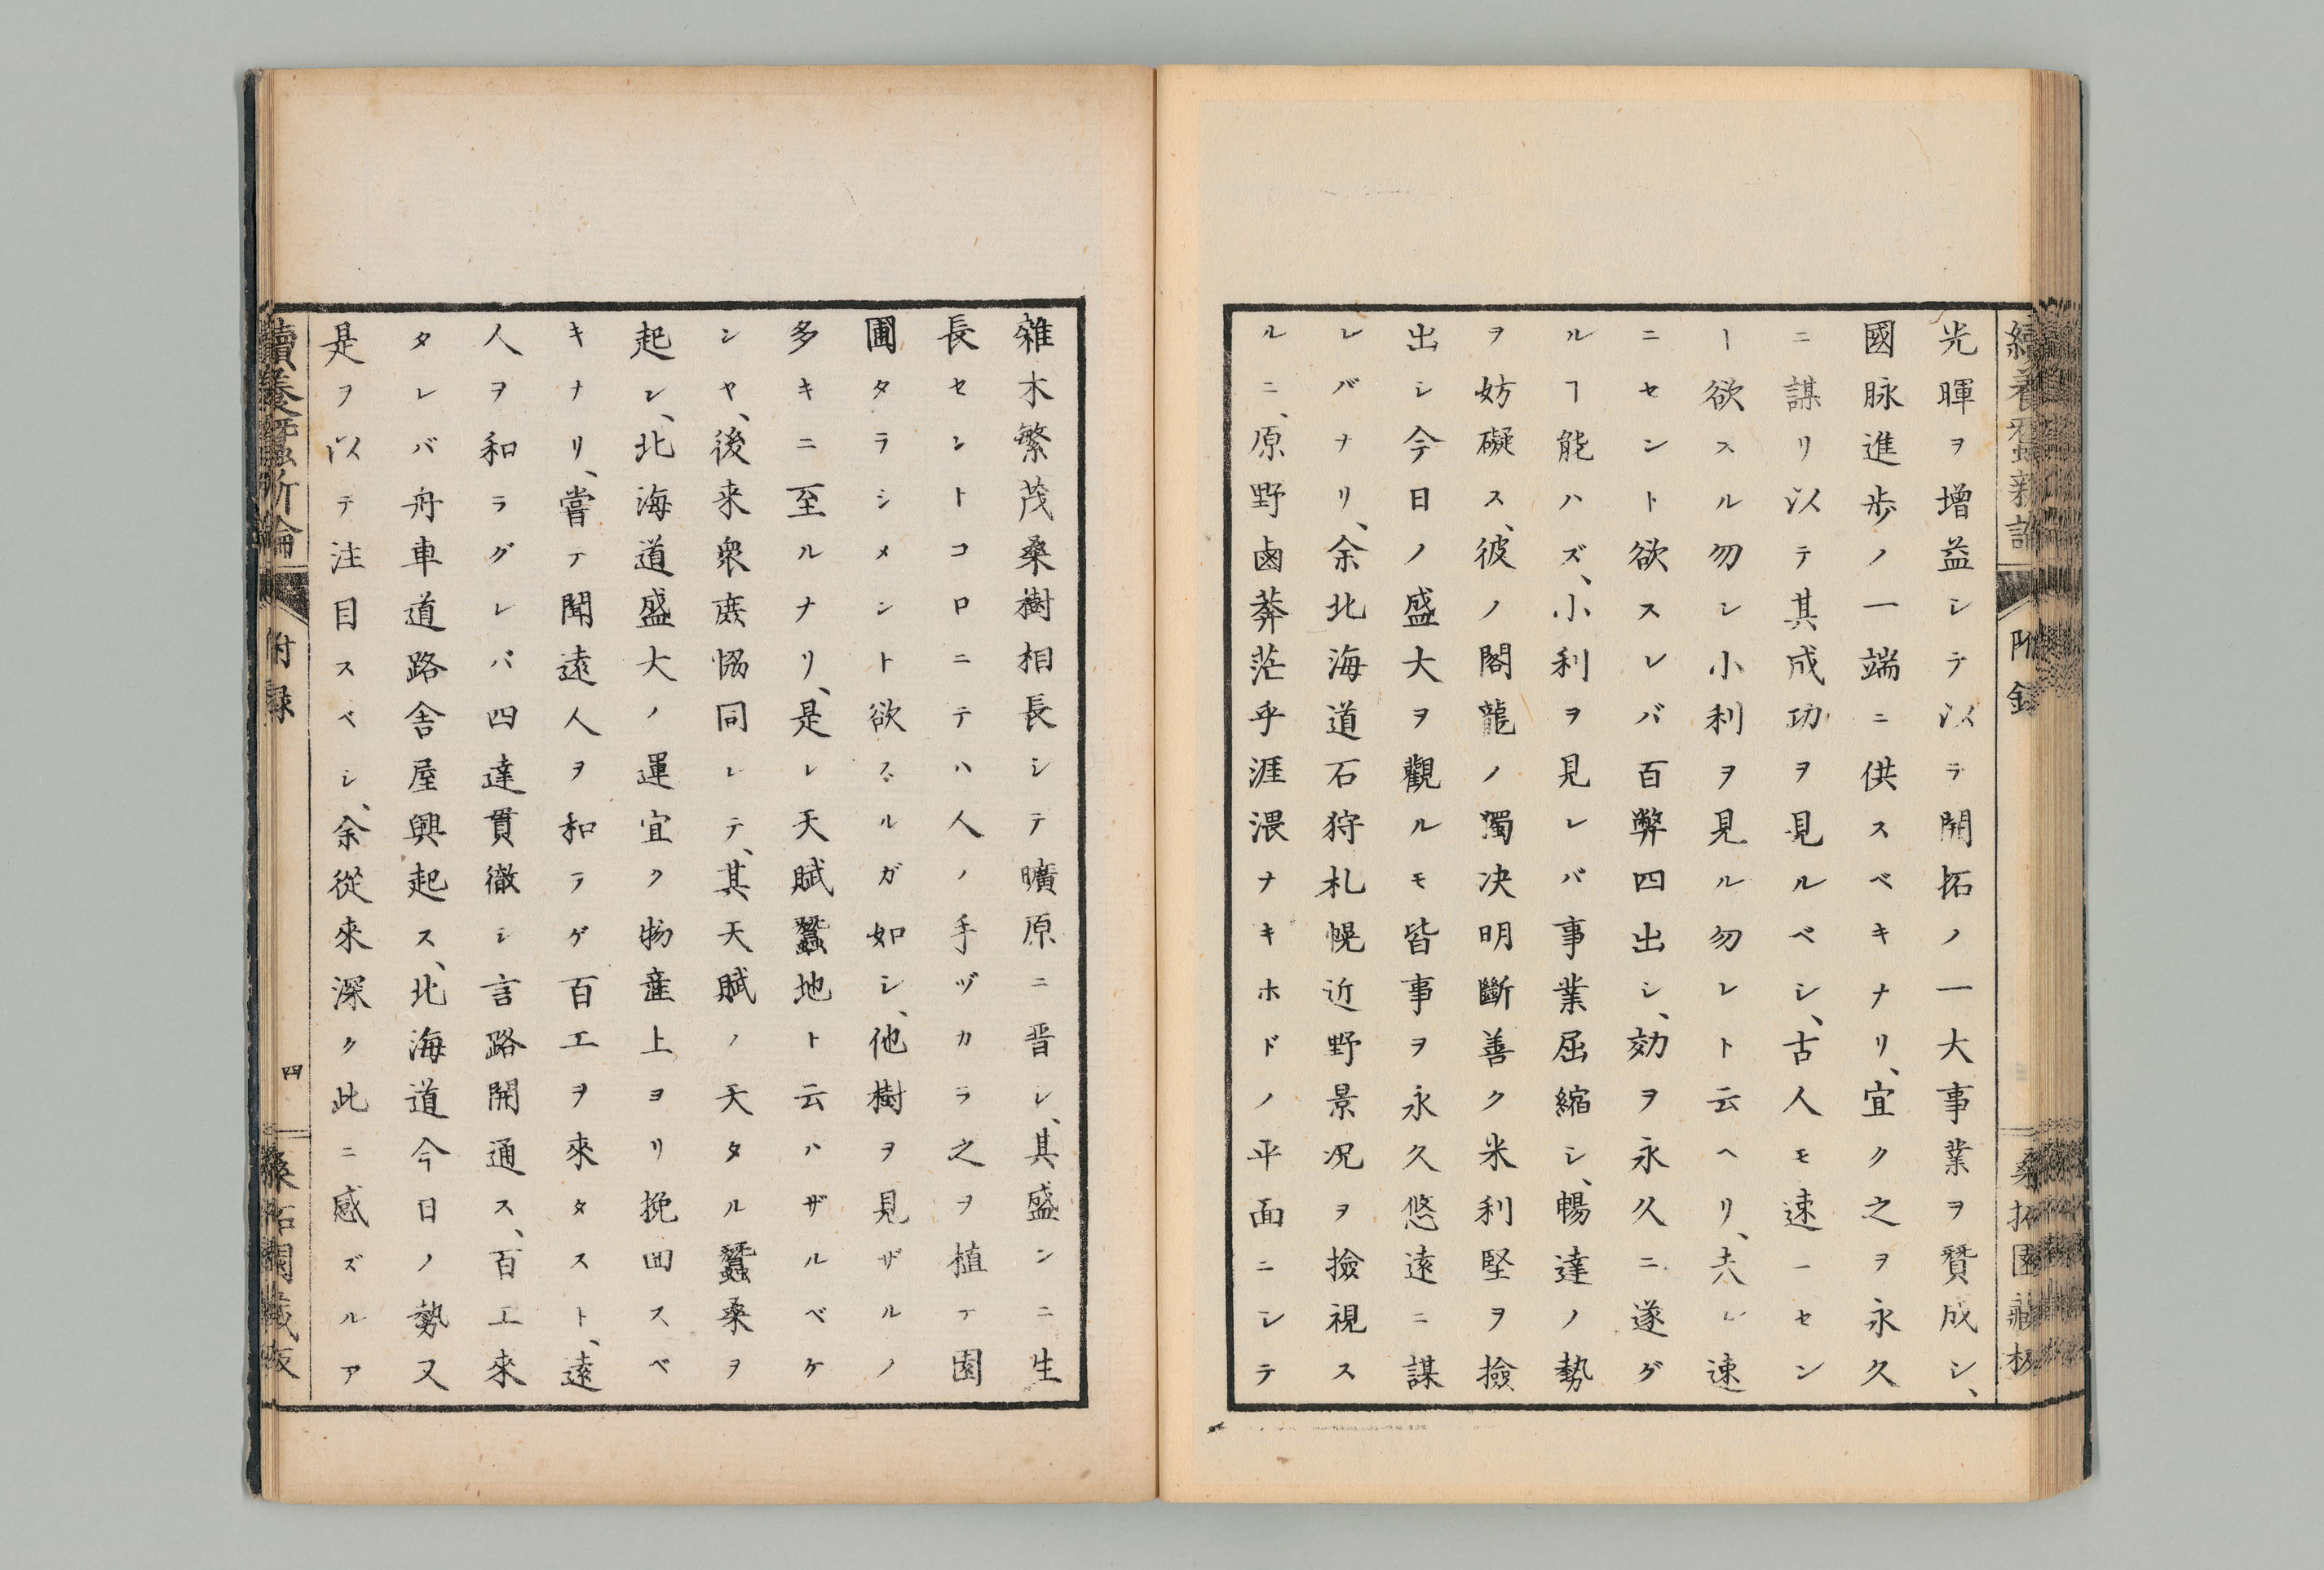 續養蠶新論
附錄
桑拓園藏板
光暉ヲ増益シテ以テ開拓ノ一大事業ヲ賛成シ、
國脉進歩ノ一端ニ供スベキナリ、宜ク之ヲ永久
ニ謀リ以テ其成功ヲ見ルベシ、古人モ速ーセン
ー欲スル勿レ小利ヲ見ル勿レト云ヘリ、夫レ速
ニセント欲スレバ百弊四出シ、効ヲ永久ニ遂グ
ルヿ能ハズ、小利ヲ見レバ事業屈縮シ、暢達ノ勢
ヲ妨礙ス、彼ノ閣龍ノ獨决明斷善ク米利堅ヲ撿
出シ今日ノ盛大ヲ觀ルモ皆事ヲ永久悠遠ニ謀
レバナリ、余北海道石狩札幌近野景况ヲ撿視ス
ルニ、原野鹵莽茫乎涯渨ナキホドノ平面ニシテ
雜木繁茂桑樹相長シテ曠原ニ晋レ、其盛ンニ生
長セシトコロニテハ人ノ手ヅカラ之ヲ植テ園
圃タラシメント欲スルガ如シ、他樹ヲ見ザルノ
多キニ至ルナリ、是レ天賦蠶地ト云ハザルベケ
ンヤ、後来衆庶恊同シテ、其天賦ノ天タル蠶桑ヲ
起シ、北海道盛大ノ運宜ク物産上ヨリ挽回スベ
キナリ、嘗テ聞遠人ヲ和ラゲ百工ヲ來タスト、遠
人ヲ和ラグレバ四達貫徹シ言路開通ス、百工來
タレバ舟車道路舎屋興起ス、北海道今日ノ勢又
是ヲ以テ注目スベシ、余從來深ク此ニ感ズルア
續養蠶新論
附録
四
桑拓園藏板